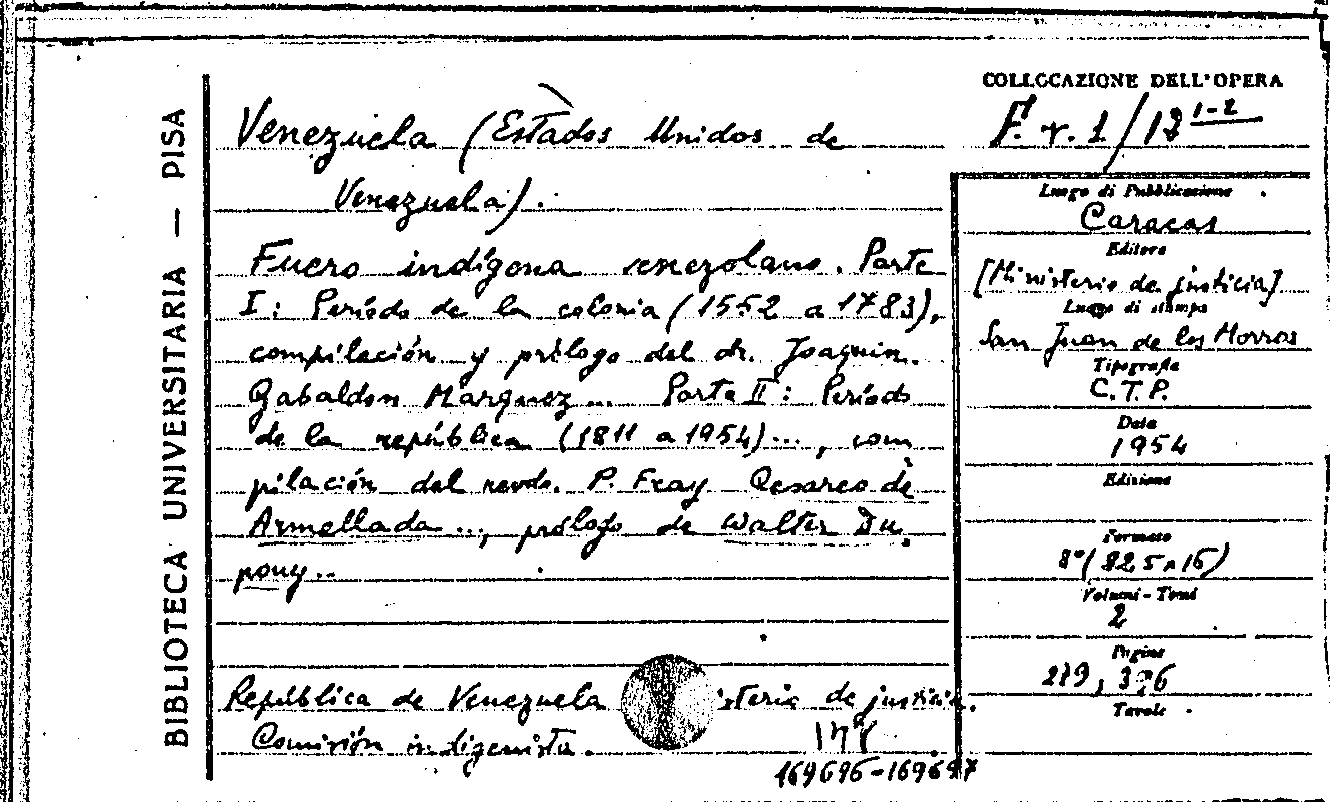 BIBLIOTECA UNIVERSITARIA — PISA
Venezuela (Estados Unidos de
Venezuela).
Fuero indígena venezolano. Parte
I: Período de la colonia (1552 a 1783),
compilación y prólogo del dr. Joaquin
Gabaldon Marquez... Parte II: Período
de la república (1811 a 1954)..., com
pilación del revdo. P. Fray Cesareo de
Armellada..., prólogo de Walter Du.
pouy..
República de Venezuela
de justicia.
Comisión indigenista.
169696-169697
COLLOCAZIONE DELL'OPERA
F. r. 1/12 1-2
Luogo di Pubblicazione
Caracas
Editore
[Ministerio de justicia]
Luogo di stampa
San Juan de los Morros
Tipografia
C.T.P.
Data
1954
Edizione
Formato
8°
Volumi - Tomi
2
Pagine
Tavole